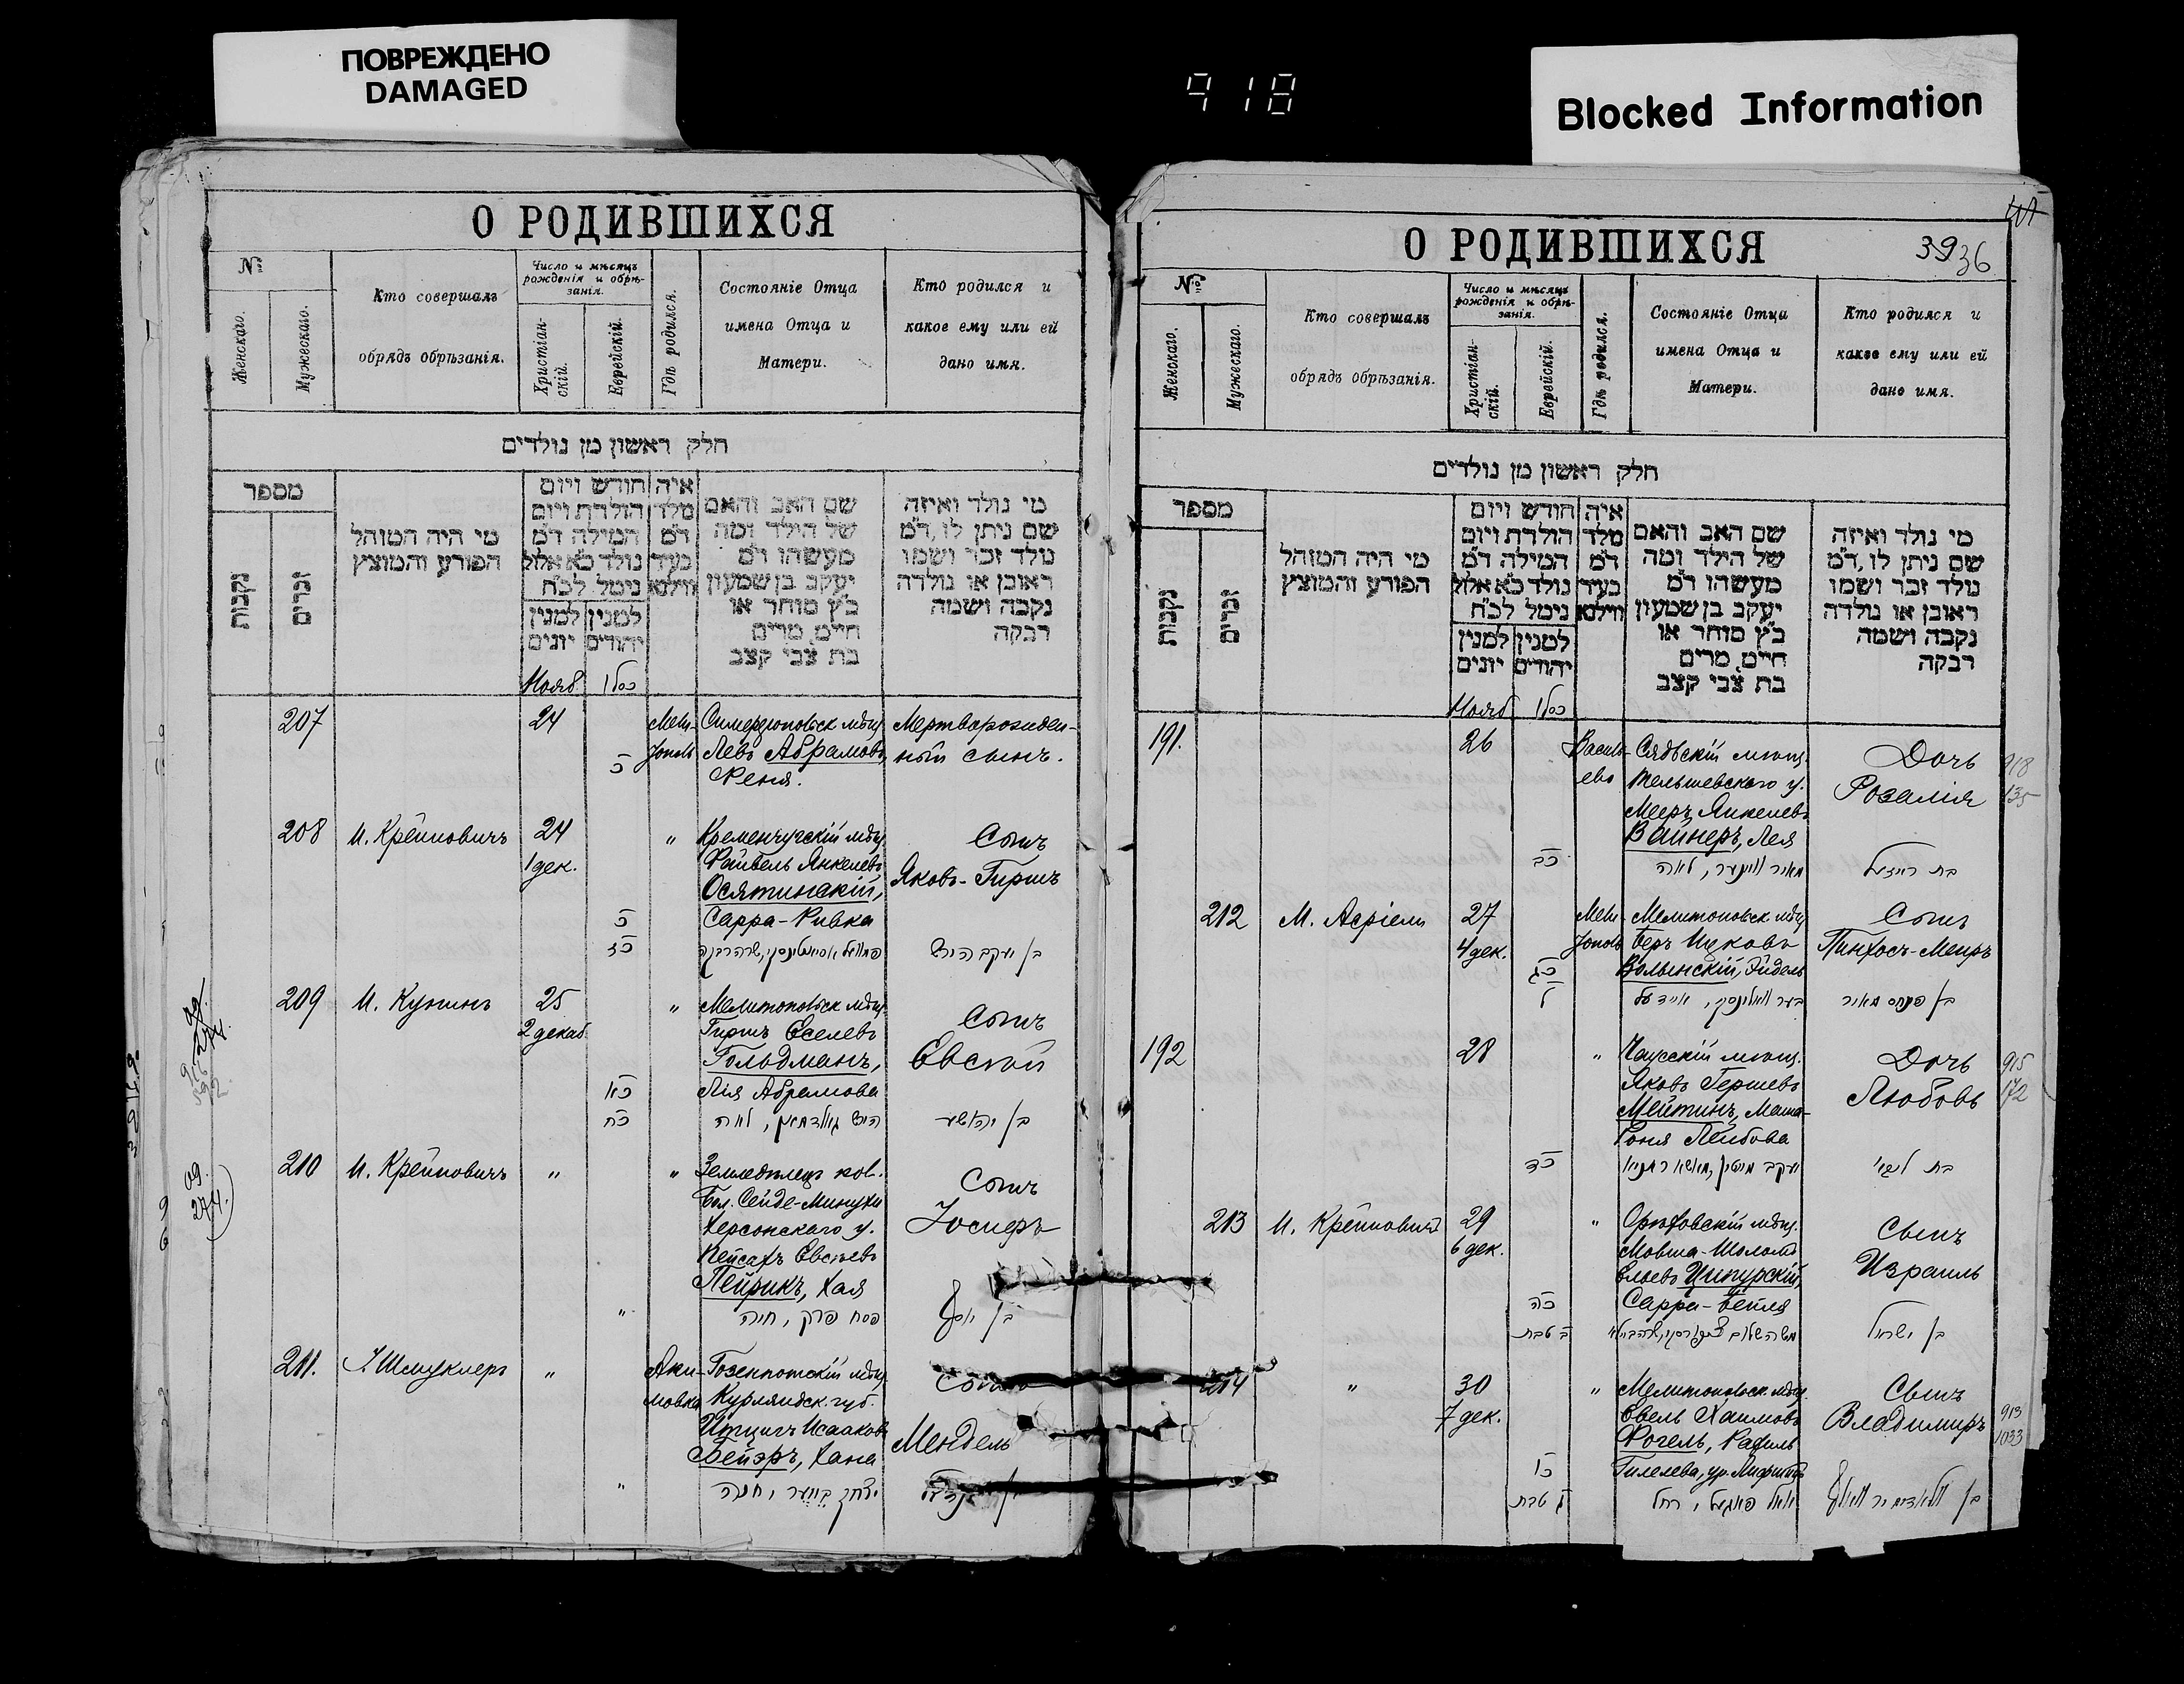 ПОВРЕЖДЕНО
DAMAGED
918
Blocked Information
О РОДИВШИХСЯ
№
Женскаго.
Мужескаго.
Кто совершалъ
обрядъ обрѣзанія.
Число и мѣсяцъ
рожденія и обрѣ-
занія.
Христіан-
скій.
Еврейскій.
Гдѣ родился.
Состояніе Отца
имена Отца и
Матери.
Кто родился и
какое ему или ей
дано имя.
חלק ראשון מן נולדים
מספר
נקבות
זכרים
מי היה המוהל
הפורע והמוצץ
חודש ויום
הולדת ויום
המילה ד״מ
נולד כ״א אלול
נימל לכ״ח
למנין יהודים
למנין יונים
איה
מלד
ד״מ
בעיר
ווילנא
שם האב והאם
של הילד ומה
מעשהו ד״מ
יעקב בן שמעון
כ״ץ סוחר או
חייט, מרים
בת צבי קצב
מי נולד ואיזה
שם ניתן לו, ד״מ
נולד זכר ושמו
ראובן או נולדה
נקבה ושמה
רבקה
Нояб
כסלו
207
24
כ
Мели-
тополь
Симферопольск мѣщ
Левъ Абрамовъ
Феня.
Мертворожден-
ный сынъ.
208
И. Крейновичъ
24
1 дек.
כ
כז
"
Кременчугскій мѣщ.
Файвель Янкелевъ
Осятинскій,
Сарра-Ривка
Сынъ
Яковъ-Гиршъ
בן יעקב הירש
209
И. Кунинъ
25
2 декаб
כא
כח
"
Мелитопольск мѣщ.
Гиршъ Евселевъ
Гольдманъ,
Лія Абрамова
הירש גאלדמאן, לאה
Сынъ
Евсей
בן יהושע
210
И. Крейновичъ
"
"
"
Земледѣлецъ кол.
Бол. Сейде-Минухи
Херсонскаго у.
Пейсахъ Евсѣевъ
Пейрикъ, Хая
פסח פרק, חיה
Сынъ
Іосифъ
בן יוסף
211.
І. Шмуклеръ
"
"
Аки-
мовка
Газенпотскій мѣщ.
Курляндск. губ.
Итцигъ Исааковъ
Бейэръ, Хана
Сынъ
Мендель
О РОДИВШИХСЯ
3936
№
Женскаго.
Мужескаго.
Кто совершалъ
обрядъ обрѣзанія.
Число и мѣсяцъ
рожденія и обрѣ-
занія.
Христіан-
скій.
Еврейскій.
Гдѣ родился.
Состояніе Отца
имена Отца и
Матери.
Кто родился и
какое ему или ей
дано имя.
חלק ראשון מן נולדים
מספר
נקבות
זכרים
מי היה המוהל
הפורע והמוצץ
חודש ויום
הולדת ויום
המילה ד״מ
נולד כ״א אלול
נימל לכ״ח
למנין יהודים
למנין יונים
איה
מלד
ד״מ
בעיר
ווילנא
שם האב והאם
של הילד ומה
מעשהו ד״מ
יעקב בן שמעון
כ״ץ סוחר או
חייט, מרים
בת צבי קצב
מי נולד ואיזה
שם ניתן לו, ד״מ
נולד זכר ושמו
ראובן או נולדה
נקבה ושמה
רבקה
Нояб
כסלו
191.
26
כב
Василь-
ево
Сядскій мѣщ.
Тельшевскаго у.
Мееръ Янкелевъ
Вайнеръ, Лея
מאיר ווינער, לאה
Дочь
Розалія
בת רייזל
918
135
212
М. Асріелъ
27
4 дек.
כג
ל
Мели-
тополь
Мелитопольск мѣщ
Беръ Ицковъ
Волынскій, Эйдель
בער וואלינסקי, איידעל
Сынъ
Пинхосъ-Меиръ
בן פנחס מאיר
192
28
כד
"
Чаусскій мѣщ.
Яковъ Гершевъ
Мейтинъ, Маша-
Роня Лейбова
Дочь
Любовь
915
172
213
И. Крейновичъ
29
6 дек.
כה
ב טבת
"
Орѣховскій мѣщ.
Мовша-Шоломъ
Ельевъ Ципурскій,
Сарра-Бейля
Сынъ
Израиль
בן ישראל
214
"
30
7 дек.
כו
ג טבת
"
Мелитопольск. мѣщ.
Евель Хаимовъ
Фогель, Рахиль
Гилелева, ур. Лифшицъ
יואל פאגעל, רחל
Сынъ
Владимиръ
913
1033